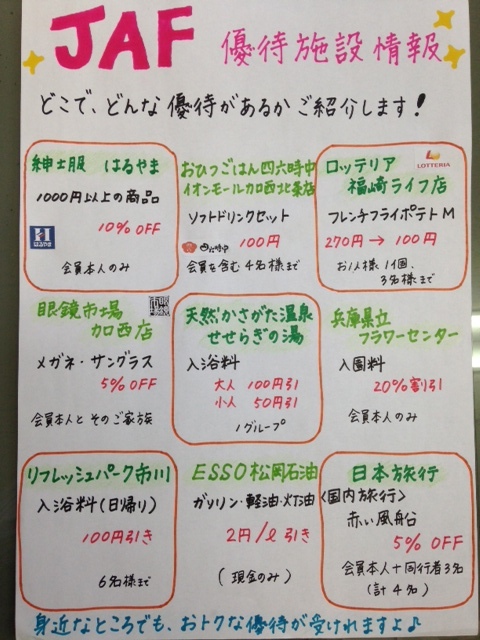 JAF 優待施設情報
どこで、どんな優待があるかご紹介します!
紳士服 はるやま
1000円以上の商品
10% OFF
はるやま
会員本人のみ
おひつごはん四六時中
イオンモール加西北条店
ソフトドリンクセット
四六時中 100円
会員を含む4名様まで
LOTTERIA
ロッテリア
福崎ライフ店
フレンチフライポテトM
270円→100円
お1人様1個、
3名様まで
眼鏡市場
加西店
メガネ・サングラス
5% OFF
会員本人とそのご家族
天然かさがた温泉
せせらぎの湯
入浴料
大人 100円引
小人 50円引
1グループ
兵庫県立
フラワーセンター
入園料
20%割引
会員本人のみ
リフレッシュパーク市川
入浴料(日帰り)
100円引き
6名様まで
ESSO松岡石油
ガソリン・軽油・灯油
2円/ℓ引き
(現金のみ)
日本旅行
<国内旅行>
赤い風船
5% OFF
会員本人+同行者3名
(計4名)
身近なところでも、おトクな優待が受けれますよ♪